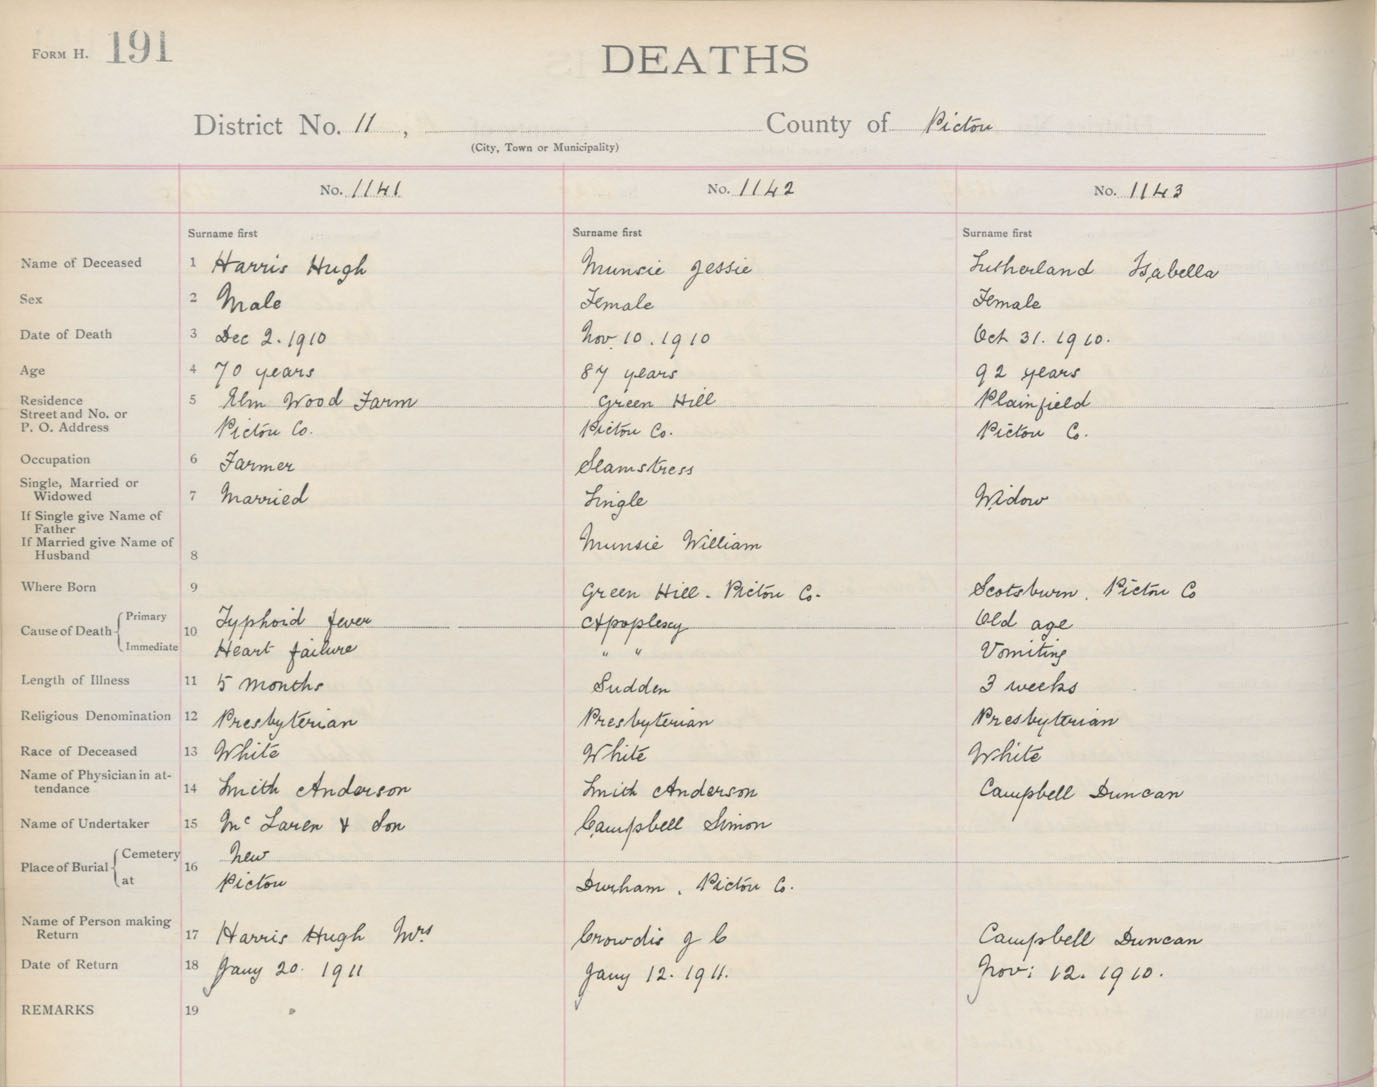 FORM H. 191
DEATHS
District No. 11, County of Pictou
(City, Town or Municipality)
No. 1141 No. 1142 No. 1143
Surname first Surname first Surname first
Name of Deceased 1 Harris Hugh Munsie Jessie Sutherland Isabella
Sex 2 Male Female Female
Date of Death 3 Dec 2. 1910 Nov. 10. 1910 Oct 31. 1910.
Age 4 70 years 87 years 92 years
Residence 5 Elm Wood Farm Green Hill Plainfield
Street and No. or
P. O. Address Pictou Co. Pictou Co. Pictou Co.
Occupation 6 Farmer Seamstress
Single, Married or
Widowed 7 Married Single Widow
If Single give Name of
Father
If Married give Name of Munsie William
Husband 8
Where Born 9 Green Hill. Pictou Co. Scotsburn. Pictou Co
Cause of Death Primary 10 Typhoid fever Apoplexy Old age
Immediate Heart failure " " Vomiting
Length of Illness 11 5 months Sudden 3 weeks
Religious Denomination 12 Presbyterian Presbyterian Presbyterian
Race of Deceased 13 White White White
Name of Physician in at-
tendance 14 Smith Anderson Smith Anderson Campbell Duncan
Name of Undertaker 15 Mc Laren & Son Campbell Simon
Place of Burial Cemetery 16 New
at Pictou Durham, Pictou Co.
Name of Person making
Return 17 Harris Hugh Mrs Crowdis J C Campbell Duncan
Date of Return 18 Jany 20. 1911 Jany 12. 1911. Nov: 12. 1910.
REMARKS 19